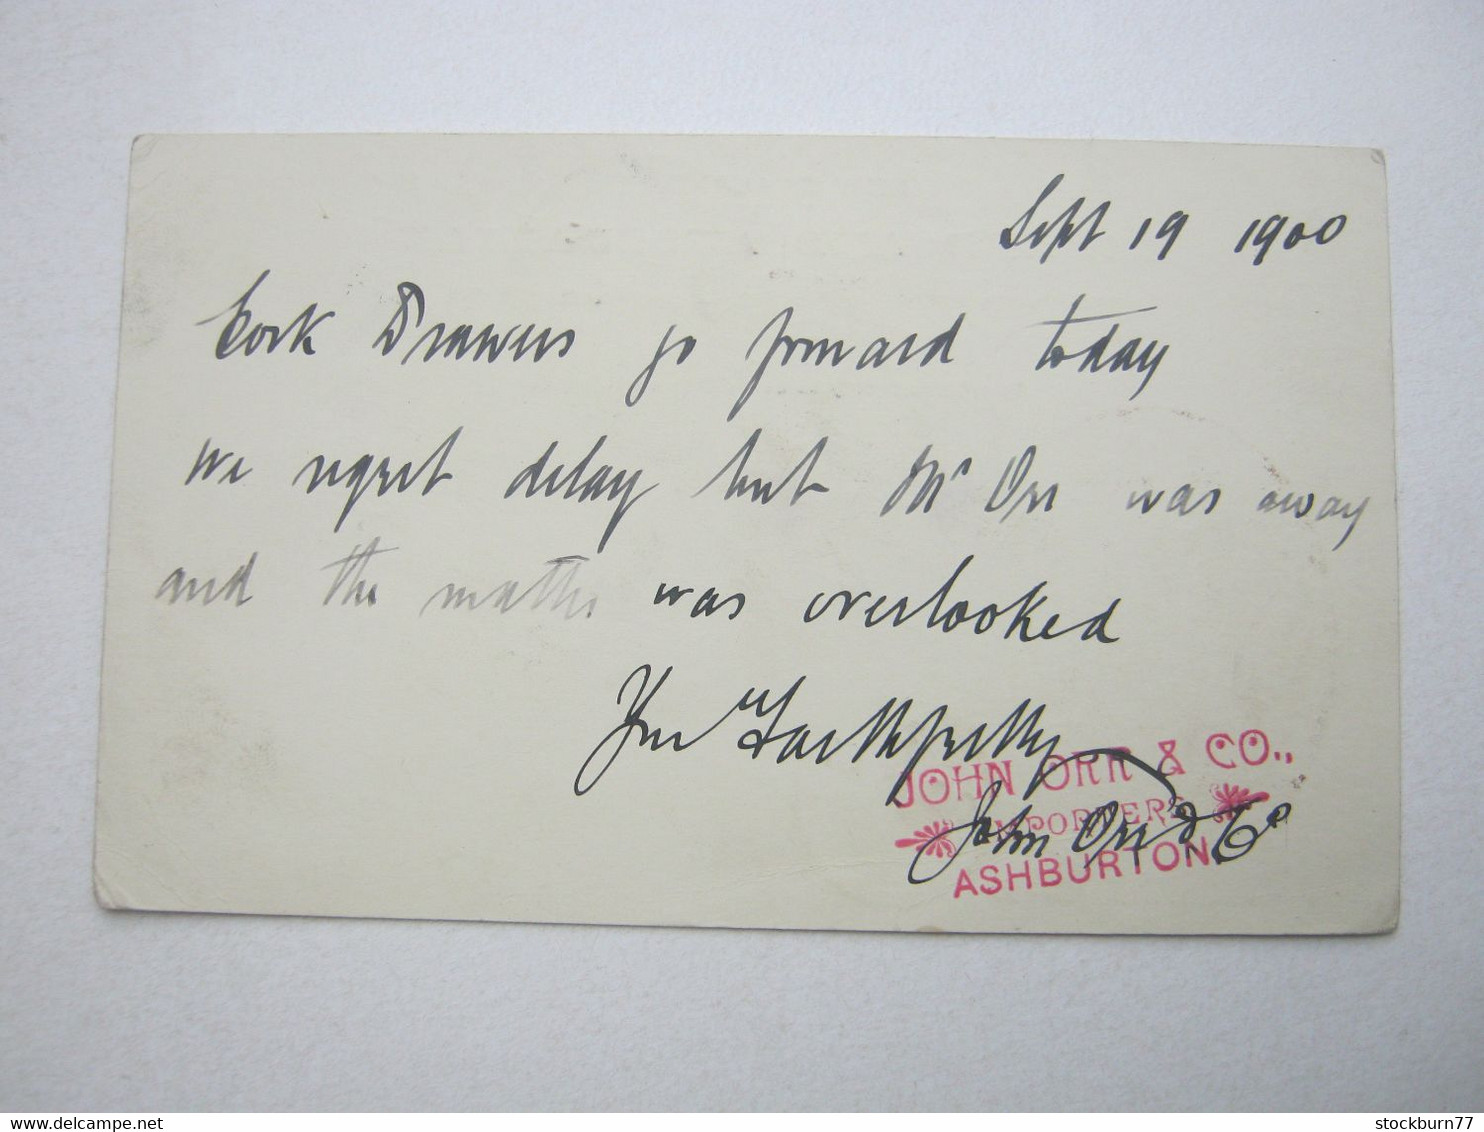 Sept 19 1900
Cork Drawers go forward today
we regret delay but Mr Orr was away
and the matter was overlooked
Yrs Faithfully
JOHN ORR & CO.,
IMPORTERS
John Orr & Co
ASHBURTON.
stockburn77